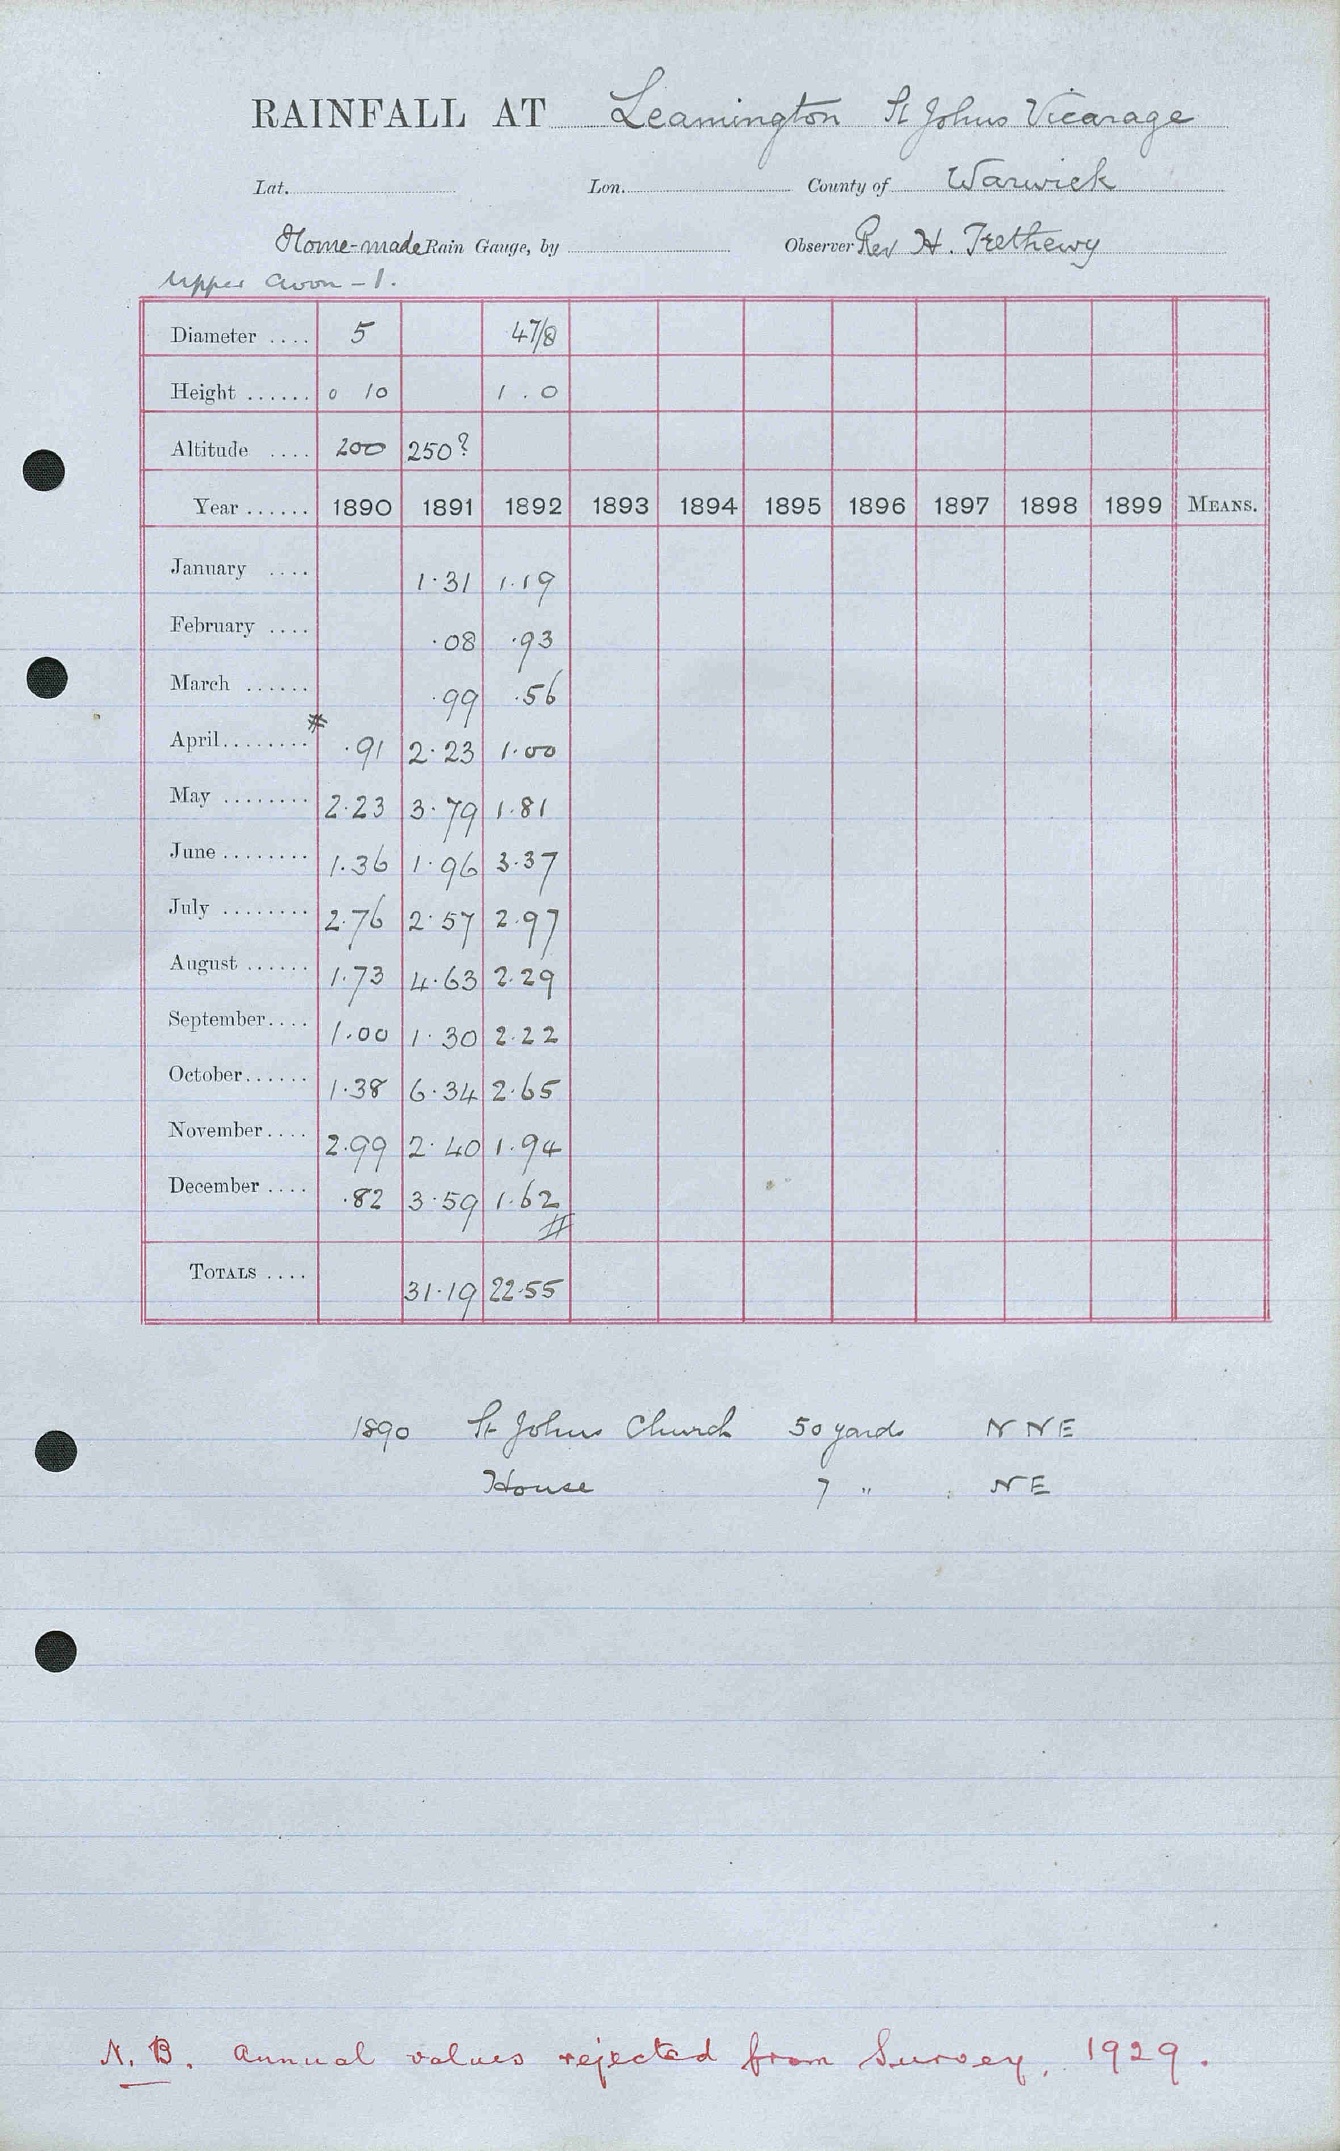 RAINFALL AT Leamington St Johns Vicarage
Lat. Lon. County of Warwick
Home-made Rain Gauge, by Observer Rev H. Trethewy
Upper Avon - 1.
Diameter .... 5 4 7/8
Height ...... 0 10 1 . 0
Altitude .... 200 250?
Year ...... 1890 1891 1892 1893 1894 1895 1896 1897 1898 1899 MEANS.
January .... 1.31 1.19
February .... .08 .93
March ...... .99 .56
April ........ # .91 2.23 1.00
May ........ 2.23 3.79 1.81
June ........ 1.36 1.96 3.37
July ........ 2.76 2.57 2.97
August ...... 1.73 4.63 2.29
September .... 1.00 1.30 2.22
October ...... 1.38 6.34 2.65
November .... 2.99 2.40 1.94
December .... .82 3.59 1.62
#
TOTALS .... 31.19 22.55
1890 St Johns Church 50 yards N N E
House 7 " N E
N. B. Annual values rejected from Survey, 1929.